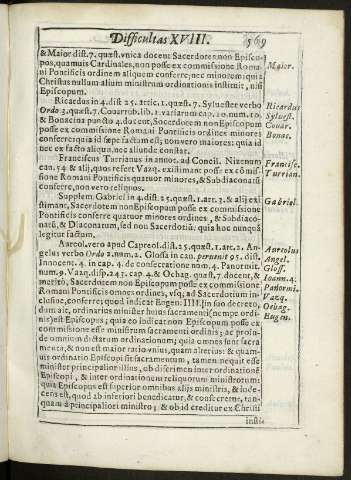 Difficultas XVIII. 569
& Maior dist. 7. quæst. vnica docent Sacerdotes non Episco-
pos, quamuis Cardinales, non posse ex commissione Roma-
ni Pontificis ordinem aliquem conferre; nec minorem: quia
Christus nullum alium ministrum ordinationis instituit, nisi
Episcopum.
Maior.
Ricardus in 4. dist 25. artic. 1. quæst. 7. Syluester verbo
Ordo 3. quæst. 7. Couarrub. lib. 1. variarum cap. 10. num. 10.
& Bonacina puncto 4. docent, Sacerdotem non Episcopum
posse ex commissione Romani Pontificis ordines minores
conferre: quia id sæpe factum est; non vero maiores: quia id
nec ex facto aliquo, nec aliunde constat.
Ricardus
Syluest.
Couar.
Bonac.
Franciscus Turrianus in annot. ad Concil. Nizenum
can. 54 & alij, quos refert Vazq. existimant posse ex commis-
sione Romani Pontificis quatuor minores, & Subdiaconatũ
conferre, non vero reliquos.
Francisc.
Turrian.
Supplem. Gabriel in 4. dist. 25. quæst. 1. art. 3. & alij exi
stimant, Sacerdotem non Episcopum posse ex commissione
Pontificis conferre quatuor minores ordines, & Subdiaco-
natũ, & Diaconatum, sed non Sacerdotiũ: quia hoc nunquã
legitur factum.
Gabriel.
Aureol. vero apud Capreol. dist. 25. quæst. 1. art. 2. An-
gelus verbo Ordo 2. num. 2. Glossa in can. peruenit 95. dist.
Innocent. 4. in cap. 4. de consecratione nom. 4. Panormit.
num. 9. Vazq. disp. 243. cap. 4. & Ochag. quæst. 7. docent, &
merito, Sacerdotem non Episcopum posse ex commissione
Romani Pontificis omnes ordines, vsq; ad Sacerdotium in-
clusiue, conferre; quod indicat Eugen. IIII. in suo decreto,
dum ait, ordinarius minister huius sacramenti (nempe ordi-
nis) est Episcopus; quia eo indicat non Episcopum posse ex
commissione esse ministrum sacramenti ordinis; ac profu-
de omnium dictarum ordinationum; quia omnes sunt sacra
menta, & non est maior ratio vnius, quam alterius: & quam-
uis ordinatio Episcopi sit sacramentum, tamen nequit esse
minister principalior illius, ob discrimen inter ordinationé
Episcopi, & inter ordinationem reliquorum ministrorum:
quia Episcopus est superior omnibus alijs ministris, & inde-
cens est, quod ab inferiori benedicatur, & consecretur, tan-
quam à principaliori ministro; & ob id creditur ex Christi
insti-
Aureolus
Angel.
Gloss.
Panormi.
Vazq.
Ochag.
Eugen.